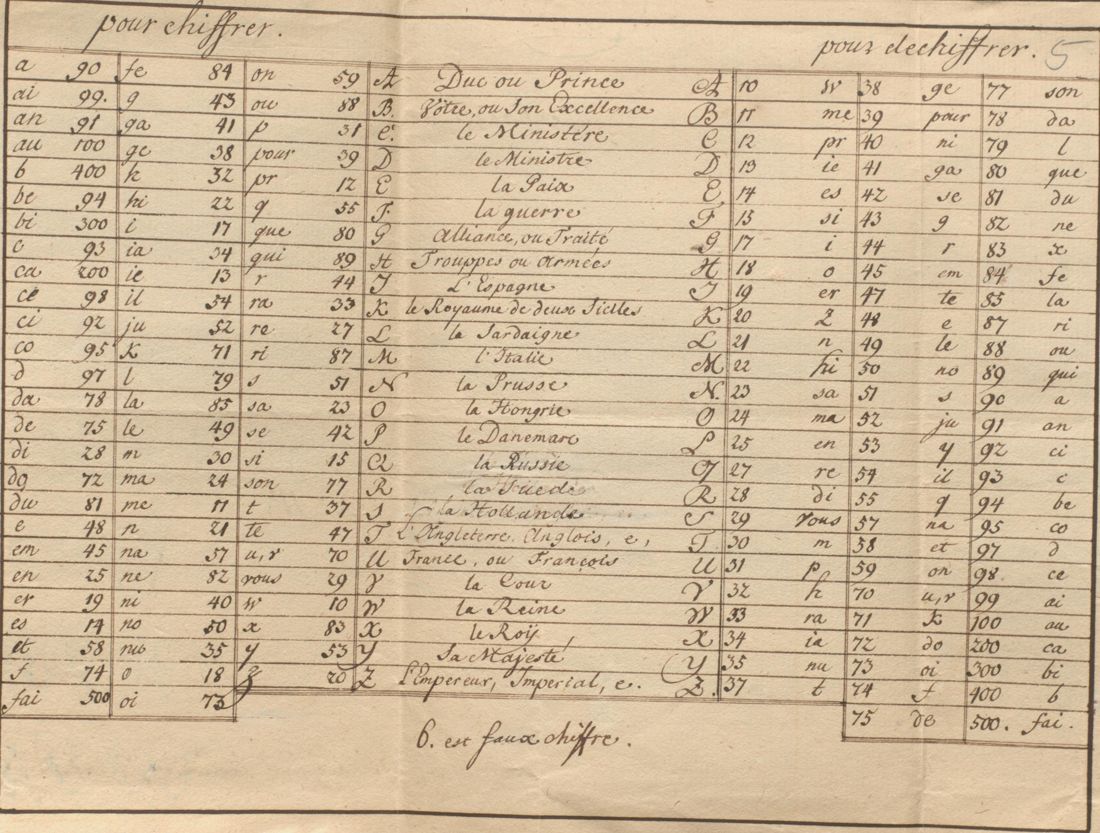 pour chiffrer.
pour dechiffrer. 5
a 90 fe 84 on 59 A Duc ou Prince A 10 w 38 ge 77 son
ai 99. g 43 ou 88 B. Votre, ou Son Excellence B 11 me 39 pour 78 da
an 91 ga 41 p 31 C. le Ministére C 12 pr 40 ni 79 l
au 100 ge 38 pour 39 D le Ministre D 13 ie 41 ga 80 que
b 400 h 32 pr 12 E la Paix E 14 es 42 se 81 du
be 94 hi 22 q 55 F. la guerre F 15 si 43 g 82 ne
bi 300 i 17 que 80 G Alliance, ou Traité G 17 i 44 r 83 x
c 93 ia 34 qui 89 H Trouppes ou Armées H 18 o 45 em 84 fe
ca 200 ie 13 r 44 I L'Espagne I 19 er 47 te 85 la
ce 98 il 54 ra 33 K le Royaume de deux Siciles K 20 z 48 e 87 ri
ci 92 ju 52 re 27 L la Sardaigne L 21 n 49 le 88 ou
co 95 k 71 ri 87 M l'Italie M 22 hi 50 no 89 qui
d 97 l 79 s 51 N la Prusse N. 23 sa 51 s 90 a
da 78 la 85 sa 23 O la Hongrie O 24 ma 52 ju 91 an
de 75 le 49 se 42 P le Danemarc P 25 en 53 y 92 ci
di 28 m 30 si 15 Q la Russie Q 27 re 54 il 93 c
do 72 ma 24 son 77 R la Suede R 28 di 55 q 94 be
du 81 me 11 t 37 S la Hollande S 29 vous 57 na 95 co
e 48 n 21 te 47 T L'Angleterre. Anglois, e, T. 30 m 58 et 97 d
em 45 na 57 u,v 70 U France, ou François U 31 p 59 on 98 ce
en 25 ne 82 vous 29 V la Cour V 32 h 70 u,v 99 ai
er 19 ni 40 w 10 W la Reine W 33 ra 71 k 100 au
es 14 no 50 x 83 X le Roÿ X 34 ia 72 do 200 ca
et 58 nu 35 y 53 Y Sa Majesté Y 35 nu 73 oi 300 bi
f 74 o 18 z 20 Z L'Empereur, Imperial, e. Z. 37 t 74 f 400 b
fai 500 oi 73 75 de 500. fai.
6. est faux chiffre.